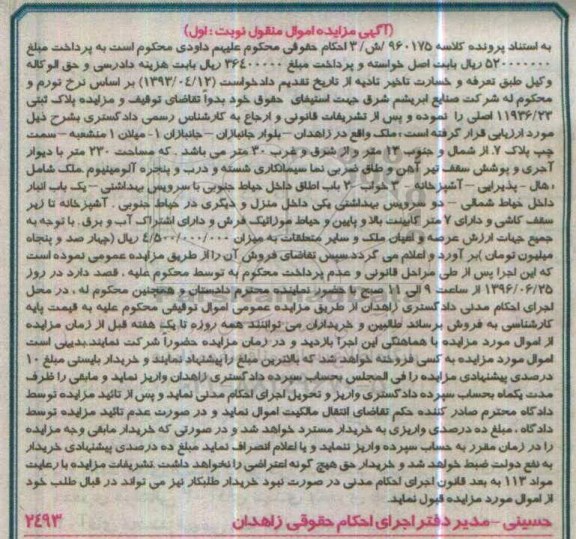 (آگهی مزایده اموال منقول نوبت : اول)
به استناد پرونده کلاسه ۹۶۰۱۷۵ /ش/ ۳ احکام حقوقی محکوم علیهم داودی محکوم است به پرداخت مبلغ
۵۲۰۰۰۰۰۰۰ ریال بابت اصل خواسته و پرداخت مبلغ ۳۶۴۰۰۰۰۰ بابت هزینه دادرسی و حق الوکاله
وکیل طبق تعرفه و خسارت تاخیر تادیه از تاریخ تقدیم دادخواست (۱۳۹۳/۰۴/۱۲) بر اساس نرخ تورم و
محکوم له شرکت صنایع ابریشم شرق جهت استیفای حقوق خود بدوآ تقاضای توقیف و مزایده پلاک ثبتی
۱۱۹۳۶/۲۳ اصلی را نموده و پس از تشریفات قانونی و ارجاع به کارشناس رسمی دادگستری بشرح ذیل
مورد ارزیابی قرار گرفته است: ملک واقع در زاهدان – بلوار جانبازان – جانبازان ۱- میلان ۱ منشعبه – سمت
چپ پلاک ۷. از شمال و جنوب ۱۳ متر و از شرق و غرب ۳۰ متر می باشد . که مساحت ۲۳۰ متر با دیوار
آجری و پوشش سقف تیر آهن و طاق ضربی نما سیمانکاری شسته و درب و پنجره آلومینیوم .ملک شامل
: هال – پذیرایی – آشپزخانه – ۲ خواب – ۲ باب اطاق داخل حیاط جنوبی با سرویس بهداشتی – یک باب انبار
داخل حیاط شمالی – دو سرویس بهداشتی یکی داخل منزل و دیگری در حیاط جنوبی . آشپزخانه تا زیر
سقف کاشی و دارای ۷ متر کابینت بالا و پایین و حیاط موزائیک فرش و دارای اشتراک آب و برق . با توجه به
جمیع جهات ارزش عرصه و اعیان ملک و سایر متعلقات به میزان ۴/۵۰۰/۰۰۰/۰۰۰ ریال (چهار صد و پنجاه
میلیون تومان )بر آورد و اعلام می گردد.سپس تقاضای فروش آن را از طریق مزایده عمومی نموده است
که این اجرا پس از طی مراحل قانونی و عدم پرداخت محکوم به توسط محکوم علیه ، قصد دارد در روز
۱۳۹۶/۰۶/۲۵ از ساعت ۹ الی ۱۱ صبح با حضور نماینده محترم دادستان و همچنین محکوم له ، در محل
اجرای احکام مدنی دادگستری زاهدان از طریق مزایده عمومی اموال توقیفی محکوم علیه به قیمت پایه
کارشناسی به فروش برساند طالبین و خریداران می توانند همه روزه تا یک هفته قبل از زمان مزایده
از اموال مورد مزایده با هماهنگی این اجرا بازدید و در زمان مزایده حضورآ شرکت نمایند.بدیهی است
اموال مورد مزایده به کسی فروخته خواهد شد که بالاترین مبلغ را پیشنهاد نمایند و خریدار بایستی مبلغ ۱۰
درصدی پیشنهادی مزایده را فی المجلس بحساب سپرده دادگستری زاهدان واریز نماید و مابقی را ظرف
مدت یکماه بحساب سپرده دادگستری واریز و تحویل اجرای احکام مدنی نماید و پس از تائید مزایده توسط
دادگاه محترم صادر کننده حکم تقاضای انتقال مالکیت اموال نماید و در صورت عدم تائید مزایده توسط
دادگاه ، مبلغ ده درصدی واریزی به خریدار مسترد خواهد شد و در صورتی که خریدار مابقی وجه مزایده
را در زمان مقرر به حساب سپرده واریز ننماید و یا اعلام انصراف نماید مبلغ ده درصدی پیشنهادی خریدار
به نفع دولت ضبط خواهد شد و خریدار حق هیچ گونه اعتراضی را نخواهد داشت .تشریفات مزایده با رعایت
مواد ۱۱۳ به بعد قانون اجرای احکام مدنی در صورت نبود خریدار طلبکار نیز می تواند در قبال طلب خود
از اموال مورد مزایده قبول نماید
حسینی –مدیر دفتر اجرای احکام حقوقی زاهدان ۲۴۹۳